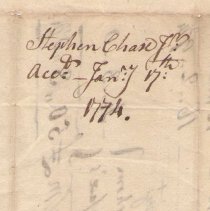 Stephen Chase Jr.
Acco. – Jany. 17th
1774.